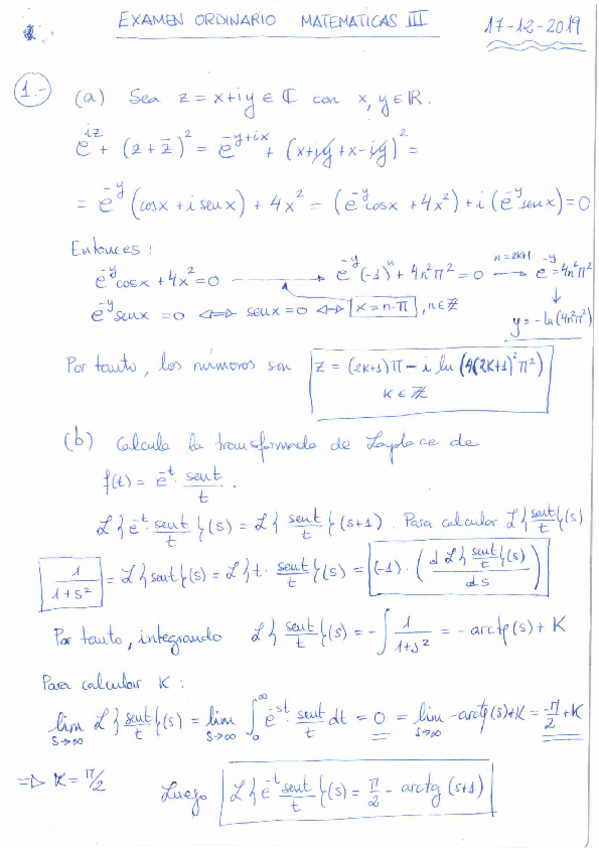 EXAMEN ORDINARIO MATEMATICAS III 17-12-2019
1.- (a) Sea z = x+iy ∈ ℂ con x, y ∈ ℝ.
e^{iz} + (z + z̄)^2 = e^{-y+ix} + (x+iy+x-iy)^2 =
= e^{-y} (cosx + i senx) + 4x^2 = (e^{-y}cosx + 4x^2) + i (e^{-y}senx) = 0
Entonces :
e^{-y}cosx + 4x^2 = 0 → e^{-y}(-1)^n + 4n^2π^2 = 0 →^{n=2k+1} e^{-y} = 4n^2π^2
e^{-y}senx = 0 ⇔ senx = 0 ⇔ x = n·π , n∈ℤ
↓
y = -ln(4n^2π^2)
Por tanto, los números son z = (2k+1)π - i ln (4(2k+1)^2π^2)
k ∈ ℤ
(b) Calcula la transformada de Laplace de
f(t) = e^{-t}· sent/t .
ℒ{e^{-t}· sent/t}(s) = ℒ{sent/t}(s+1) . Para calcular ℒ{sent/t}(s)
1/(1+s^2) = ℒ{sent}(s) = ℒ{t· sent/t}(s) = (-1)·(dℒ{sent/t}(s)/ds)
Por tanto, integrando ℒ{sent/t}(s) = -∫ 1/(1+s^2) = -arctg(s) + K
Para calcular K :
lim_{s→∞} ℒ{sent/t}(s) = lim_{s→∞} ∫_0^∞ e^{-st}· sent/t dt = 0 = lim_{s→∞} -arctg(s)+K = -π/2 + K
⇒ K = π/2 Luego ℒ{e^{-t}sent/t}(s) = π/2 - arctg (s+1)